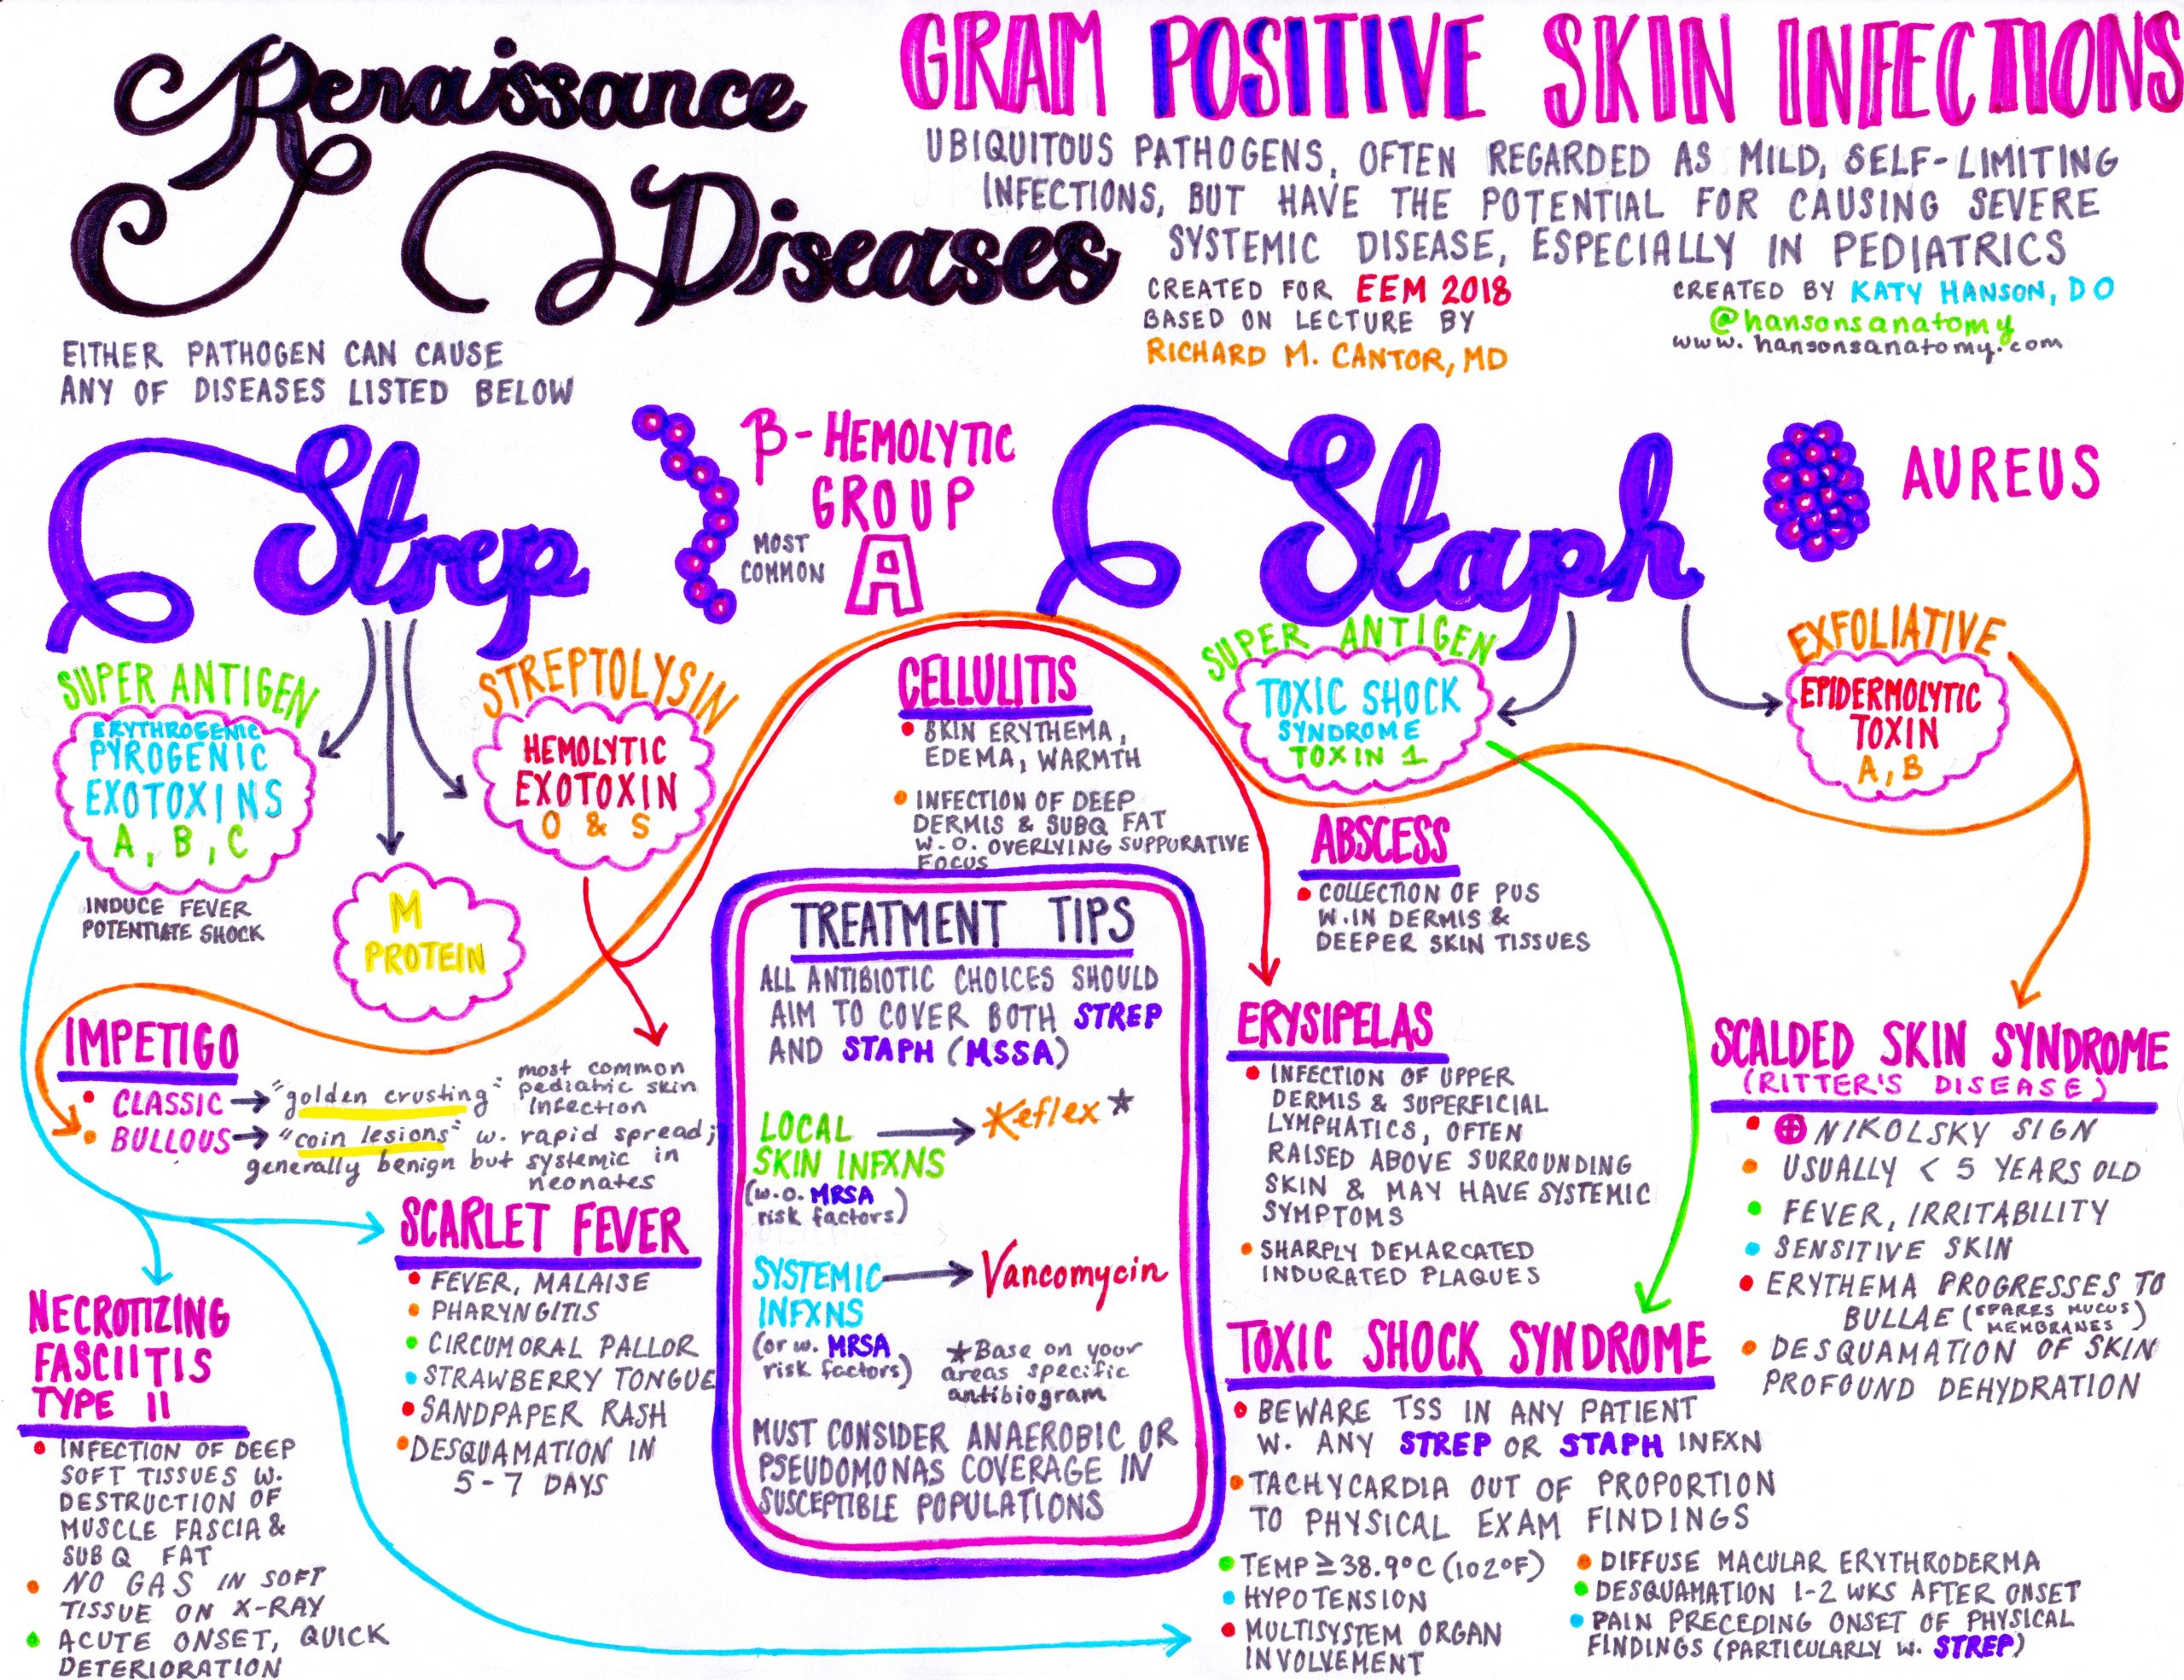 Renaissance
Diseases
GRAM POSITIVE SKIN INFECTIONS
UBIQUITOUS PATHOGENS, OFTEN REGARDED AS MILD, SELF-LIMITING
INFECTIONS, BUT HAVE THE POTENTIAL FOR CAUSING SEVERE
SYSTEMIC DISEASE, ESPECIALLY IN PEDIATRICS
CREATED FOR EEM 2018
BASED ON LECTURE BY
RICHARD M. CANTOR, MD
CREATED BY KATY HANSON, DO
@hansonsanatomy
www.hansonsanatomy.com
EITHER PATHOGEN CAN CAUSE
ANY OF DISEASES LISTED BELOW
Strep
β-HEMOLYTIC
GROUP
MOST
COMMON
A
Staph
AUREUS
SUPER ANTIGEN
ERYTHROGENIC
PYROGENIC
EXOTOXINS
A, B, C
INDUCE FEVER
POTENTIATE SHOCK
M
PROTEIN
STREPTOLYSIN
HEMOLYTIC
EXOTOXIN
O & S
CELLULITIS
SKIN ERYTHEMA,
EDEMA, WARMTH
INFECTION OF DEEP
DERMIS & SUBQ FAT
W.O. OVERLYING SUPPURATIVE
FOCUS
SUPER ANTIGEN
TOXIC SHOCK
SYNDROME
TOXIN 1
EXFOLIATIVE
EPIDERMOLYTIC
TOXIN
A, B
ABSCESS
COLLECTION OF PUS
W.IN DERMIS &
DEEPER SKIN TISSUES
IMPETIGO
CLASSIC → "golden crusting"
most common
pediatric skin
infection
BULLOUS → "coin lesions" w. rapid spread;
generally benign but systemic in
neonates
SCARLET FEVER
FEVER, MALAISE
PHARYNGITIS
CIRCUMORAL PALLOR
STRAWBERRY TONGUE
SANDPAPER RASH
DESQUAMATION IN
5-7 DAYS
NECROTIZING
FASCIITIS
TYPE II
INFECTION OF DEEP
SOFT TISSUES W.
DESTRUCTION OF
MUSCLE FASCIA &
SUB Q FAT
NO GAS IN SOFT
TISSUE ON X-RAY
ACUTE ONSET, QUICK
DETERIORATION
TREATMENT TIPS
ALL ANTIBIOTIC CHOICES SHOULD
AIM TO COVER BOTH STREP
AND STAPH (MSSA)
LOCAL → Keflex*
SKIN INFXNS
(w.o. MRSA
risk factors)
SYSTEMIC → Vancomycin
INFXNS
(or w. MRSA
risk factors)
★Base on your
areas specific
antibiogram
MUST CONSIDER ANAEROBIC OR
PSEUDOMONAS COVERAGE IN
SUSCEPTIBLE POPULATIONS
ERYSIPELAS
INFECTION OF UPPER
DERMIS & SUPERFICIAL
LYMPHATICS, OFTEN
RAISED ABOVE SURROUNDING
SKIN & MAY HAVE SYSTEMIC
SYMPTOMS
SHARPLY DEMARCATED
INDURATED PLAQUES
SCALDED SKIN SYNDROME
(RITTER'S DISEASE)
⊕ NIKOLSKY SIGN
USUALLY < 5 YEARS OLD
FEVER, IRRITABILITY
SENSITIVE SKIN
ERYTHEMA PROGRESSES TO
BULLAE (SPARES MUCUS
MEMBRANES)
DESQUAMATION OF SKIN
PROFOUND DEHYDRATION
TOXIC SHOCK SYNDROME
BEWARE TSS IN ANY PATIENT
W. ANY STREP OR STAPH INFXN
TACHYCARDIA OUT OF PROPORTION
TO PHYSICAL EXAM FINDINGS
TEMP ≥ 38.9°C (102°F)
HYPOTENSION
MULTISYSTEM ORGAN
INVOLVEMENT
DIFFUSE MACULAR ERYTHRODERMA
DESQUAMATION 1-2 WKS AFTER ONSET
PAIN PRECEDING ONSET OF PHYSICAL
FINDINGS (PARTICULARLY W. STREP)